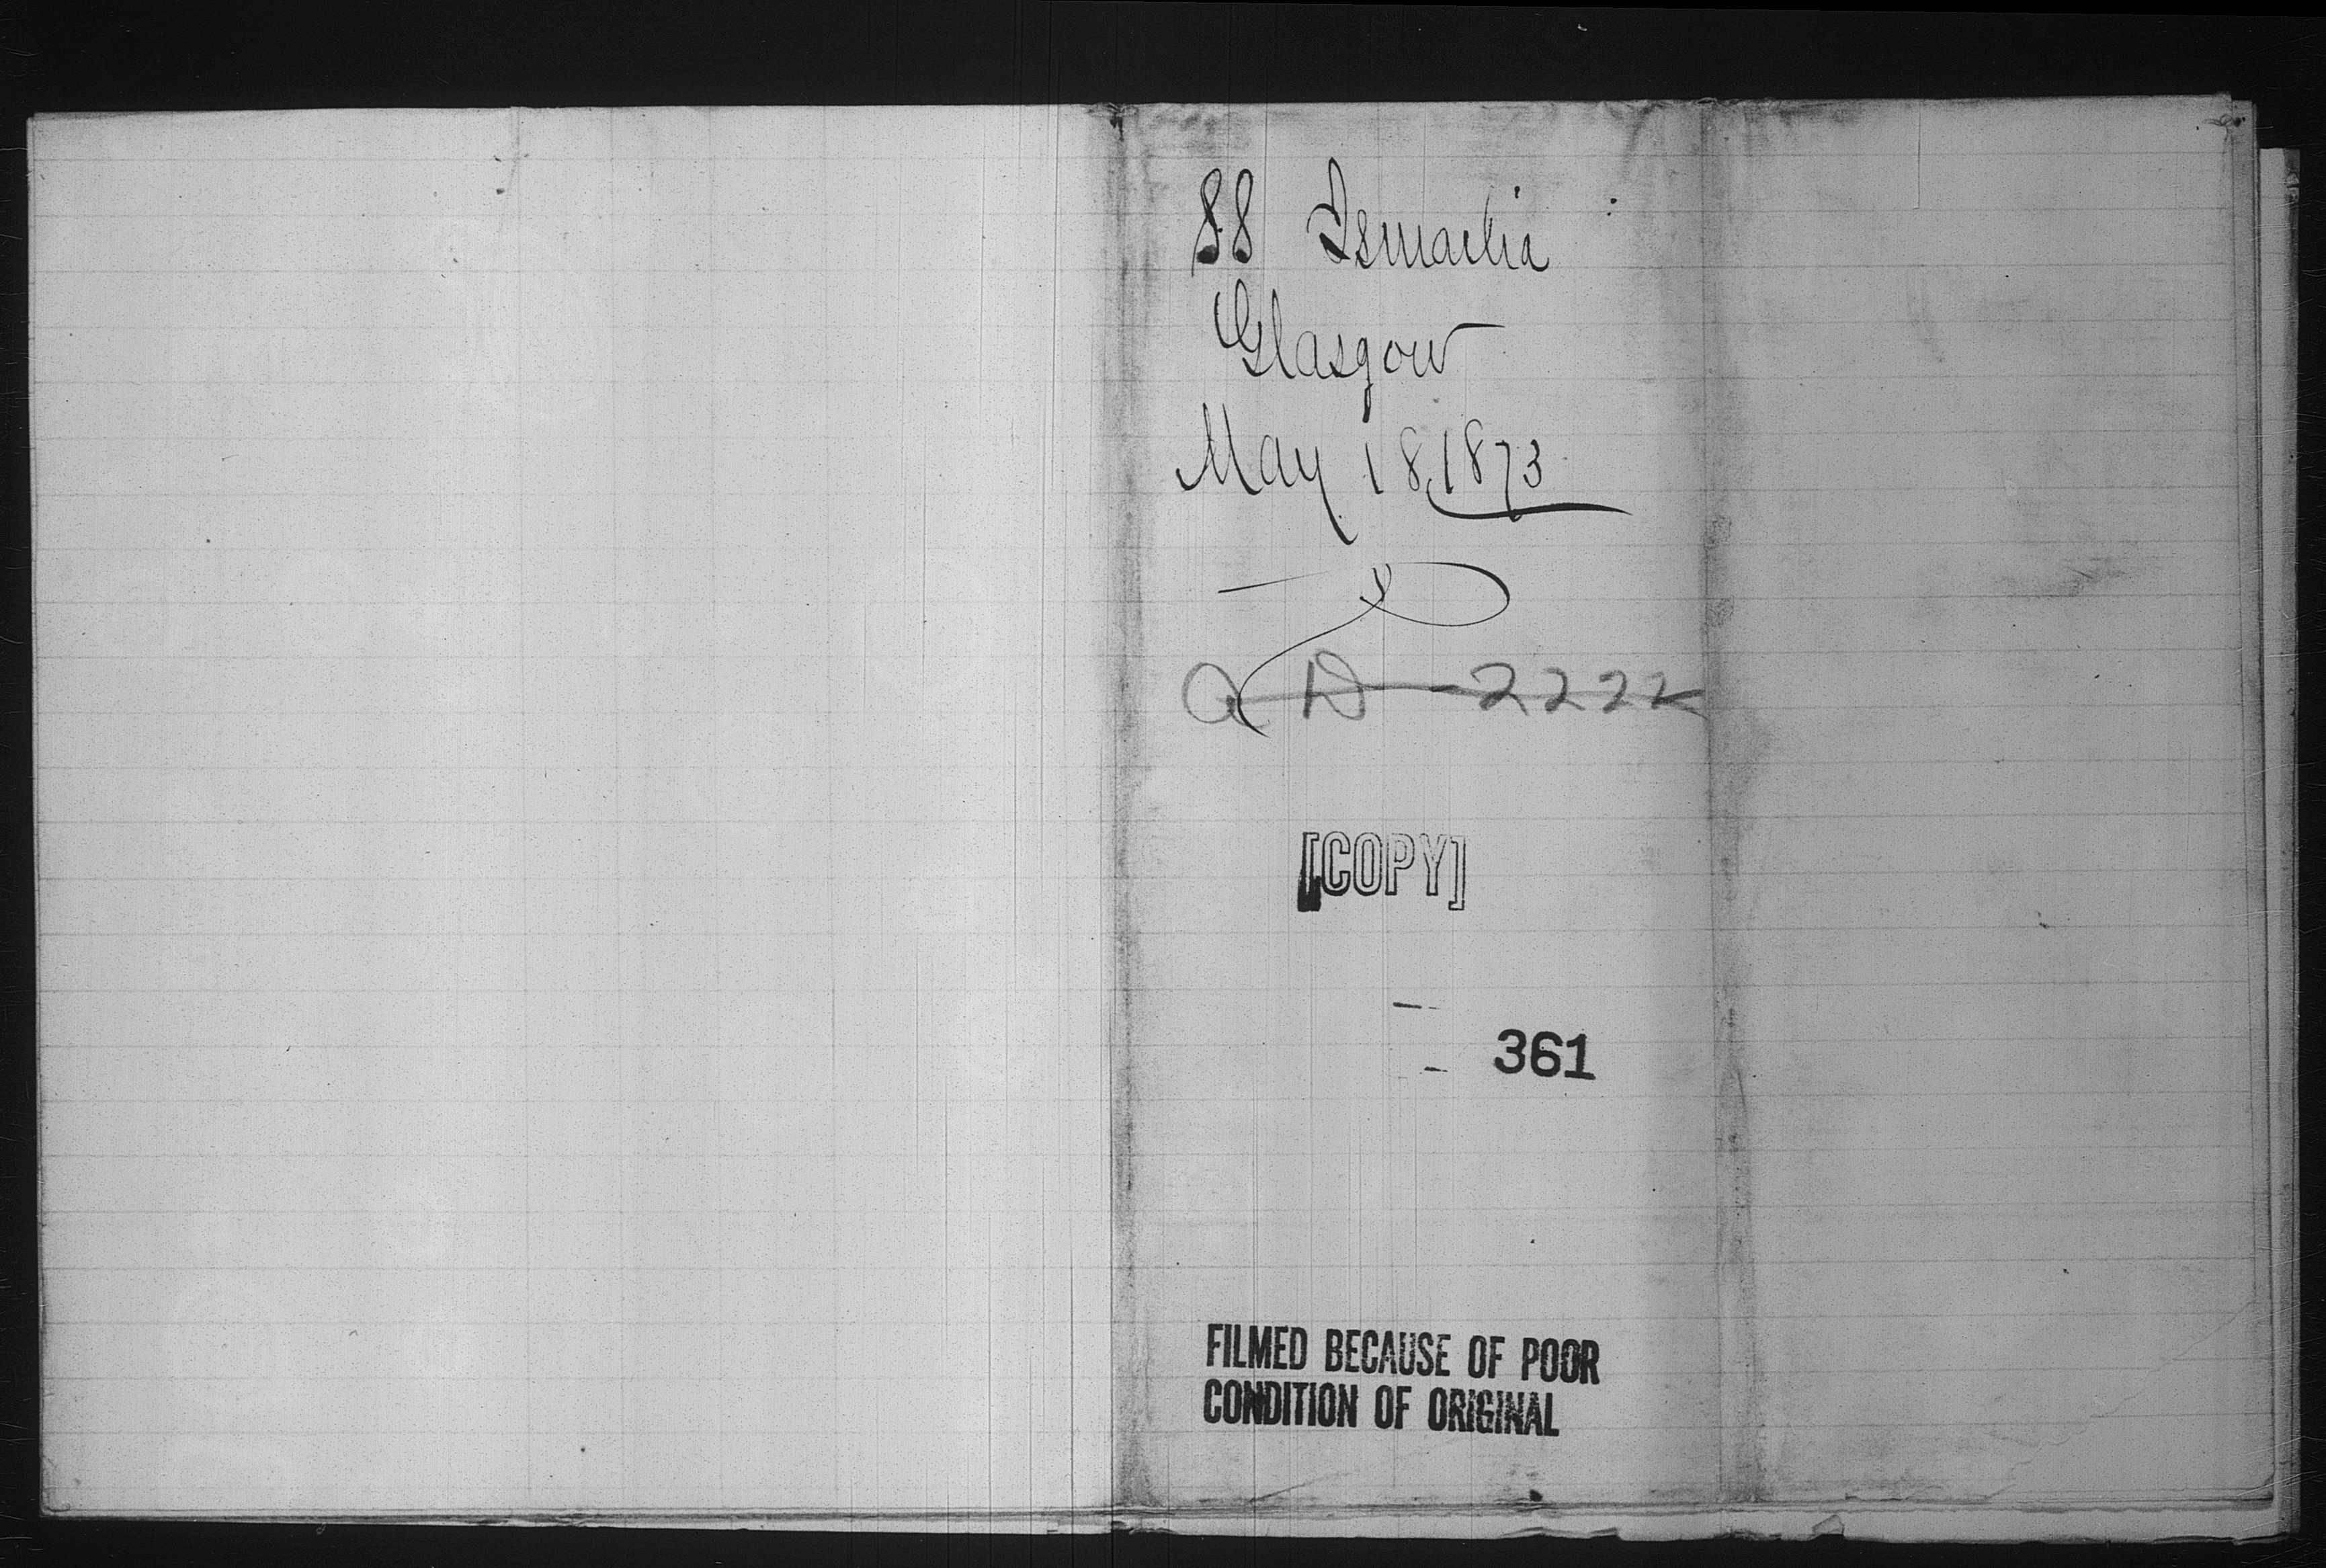 SS Ismailia
Glasgow
May 18, 1873
2222
[COPY]
361
FILMED BECAUSE OF POOR
CONDITION OF ORIGINAL